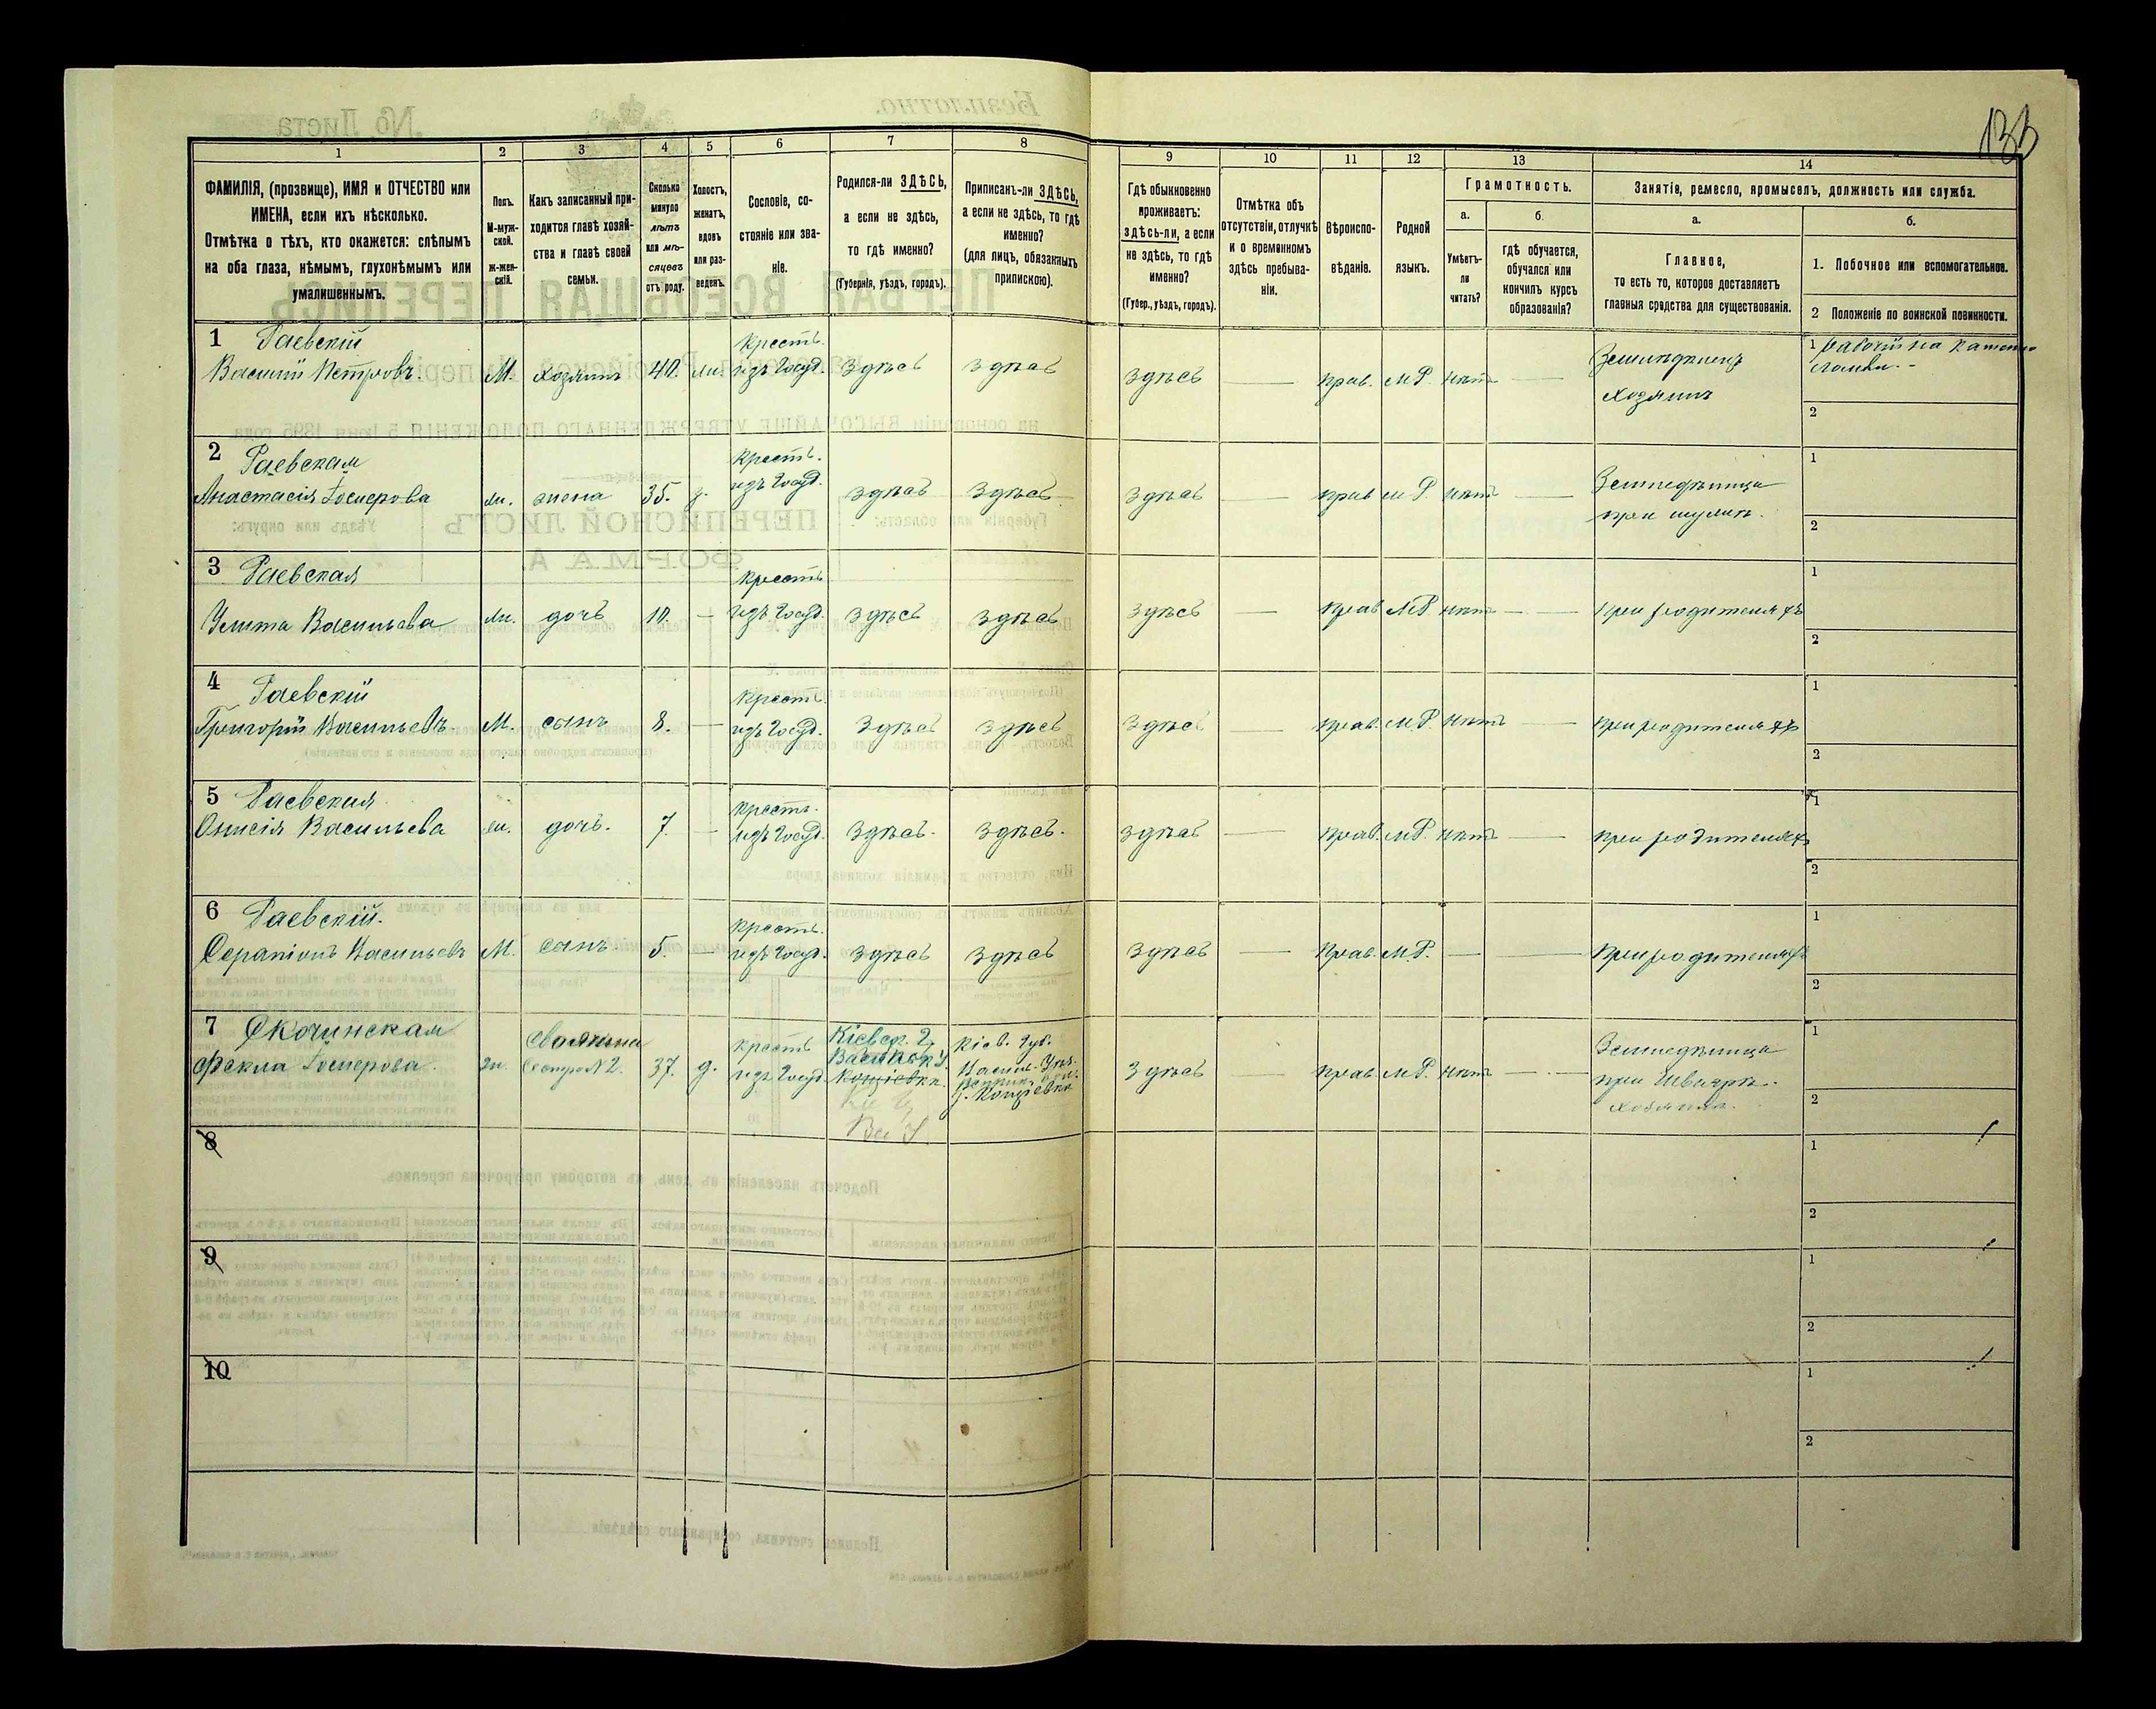 133
1
2
3
4
5
6
7
8
9
10
11
12
13
14
ФАМИЛІЯ, (прозвище), ИМЯ и ОТЧЕСТВО или
ИМЕНА, если ихъ нѣсколько.
Отмѣтка о тѣхъ, кто окажется: слѣпымъ
на оба глаза, нѣмымъ, глухонѣмымъ или
умалишеннымъ.
Полъ.
М-муж-
ской.
Ж-жен-
скій.
Какъ записанный при-
ходится главѣ хозяй-
ства и главѣ своей
семьи.
Сколько
минуло
лѣтъ
или мѣ-
сяцевъ
отъ роду.
Холостъ,
женатъ,
вдовъ
или раз-
веденъ.
Сословіе, со-
стояніе или зва-
ніе.
Родился-ли ЗДѢСЬ,
а если не здѣсь,
то гдѣ именно?
(Губернія, уѣздъ, городъ).
Приписанъ-ли ЗДѢСЬ,
а если не здѣсь, то гдѣ
именно?
(для лицъ, обязанныхъ
припискою).
Гдѣ обыкновенно
проживаетъ:
ЗДѢСЬ-ли, а если
не здѣсь, то гдѣ
именно?
(Губер., уѣздъ, городъ).
Отмѣтка объ
отсутствіи, отлучкѣ
и о временномъ
здѣсь пребыва-
ніи.
Вѣроиспо-
вѣданіе.
Родной
языкъ.
Грамотность.
а.
б.
Умѣетъ-
ли
читать?
гдѣ обучается,
обучался или
кончилъ курсъ
образованія?
Занятіе, ремесло, промыселъ, должность или служба.
а.
б.
Главное,
то есть то, которое доставляетъ
главныя средства для существованія.
1. Побочное или вспомогательное.
2 Положеніе по воинской повинности.
1 Раевскій
Василій Петровъ. М. хозяинъ 40. жн. Кресть. изъ Госуд. Здѣсь Здѣсь Здѣсь — прав. М.Р. нѣтъ — Земледѣлецъ хозяинъ
1 рабочій на каменоломни.
2
2 Раевская
Анастасія жн. жена 35. з. Кресть. изъ Госуд. Здѣсь Здѣсь Здѣсь — прав М.Р. нѣтъ — Земледѣлица при мужѣ.
1
2
3 Раевская
Улита Васильева жн. дочь 10. — Кресть изъ Госуд. Здѣсь Здѣсь Здѣсь — прав М.Р. нѣтъ — при родителяхъ
1
2
4 Раевскій
Григорій Васильевъ. М. сынъ 8. — Кресть. изъ Госуд. Здѣсь Здѣсь Здѣсь — прав. М.Р. нѣтъ — при родителяхъ
1
2
5 Раевская
Онисія Васильева жн. дочь. 7. — Кресть. изъ Госуд. Здѣсь. Здѣсь. Здѣсь — прав. М.Р. нѣтъ — при родителяхъ
1
2
6 Раевскій.
Серапіонъ Васильевъ М. сынъ 5. — Кресть. изъ Госуд. Здѣсь Здѣсь Здѣсь — прав. М.Р. — — при родителяхъ
1
2
7 Скочинская
Фекла жн. Свояченица Сестра №2. 37. д. Кресть изъ Госуд. Кіевск. Г. Васильк. У. Кощіевка. Кіев. Губ. Васильк. Уѣз. Кощіевка Здѣсь — прав М.Р. нѣтъ — Земледѣлица при
1
2
8
1
2
9
1
2
10
1
2